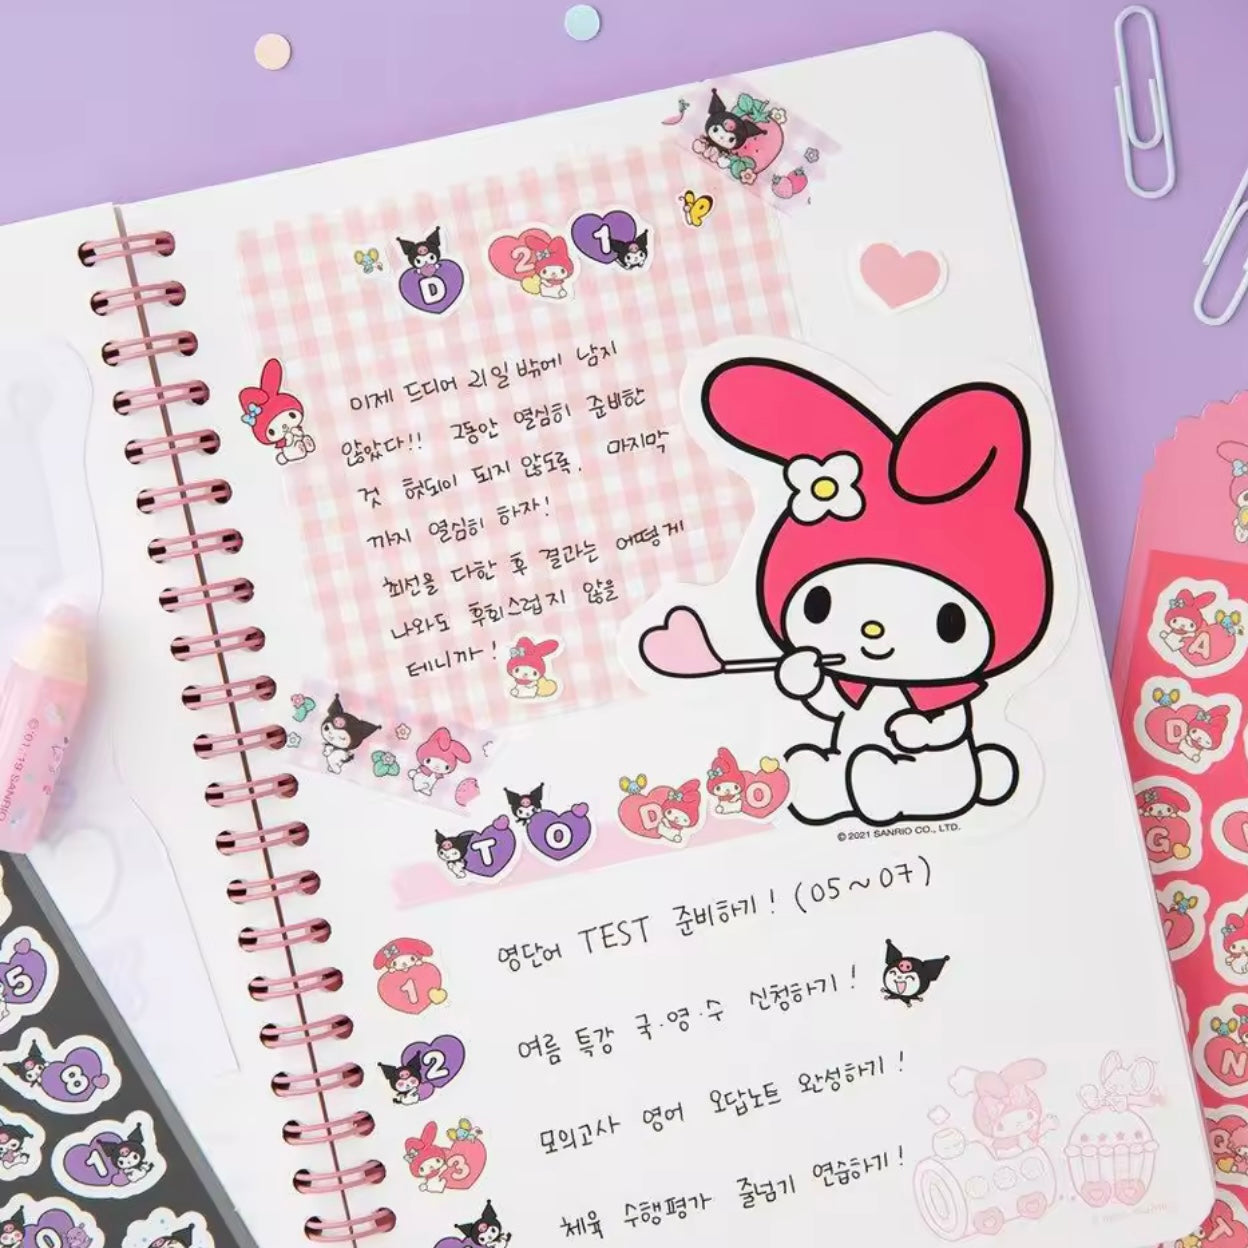 D 21
이제 드디어 21일 밖에 남지
않았다!! 그동안 열심히 준비한
것 헛되이 되지 않도록, 마지막
까지 열심히 하자!
최선을 다한 후 결과는 어떻게
나와도 후회스럽지 않을
테니까!
TO DO
© 2021 SANRIO CO., LTD.
1 영단어 TEST 준비하기! (05~07)
2 여름 특강 국·영·수 신청하기!
3 모의고사 영어 오답노트 완성하기!
체육 수행평가 줄넘기 연습하기!
©'01,'19 SANRIO
5
8
1
0
A
D
G
N